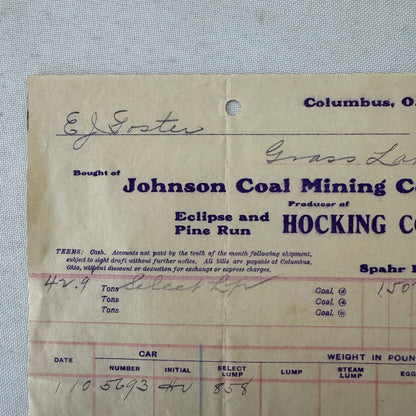 Columbus, O.
E J Foster
Grass La
Bought of
Johnson Coal Mining C
Producer of
Eclipse and
Pine Run
HOCKING C
TERMS: Cash. Accounts not paid by the tenth of the month following shipment,
subject to sight draft without further notice. All bills are payable at Columbus,
Ohio, without discount or deduction for exchange or express charges.
Spahr
42.9 Tons Select Lp Coal, @ 1.50
Tons Coal, @
Tons Coal, @
DATE CAR WEIGHT IN POUN
NUMBER INITIAL SELECT LUMP LUMP STEAM LUMP EGG
1/10 5693 HV 858